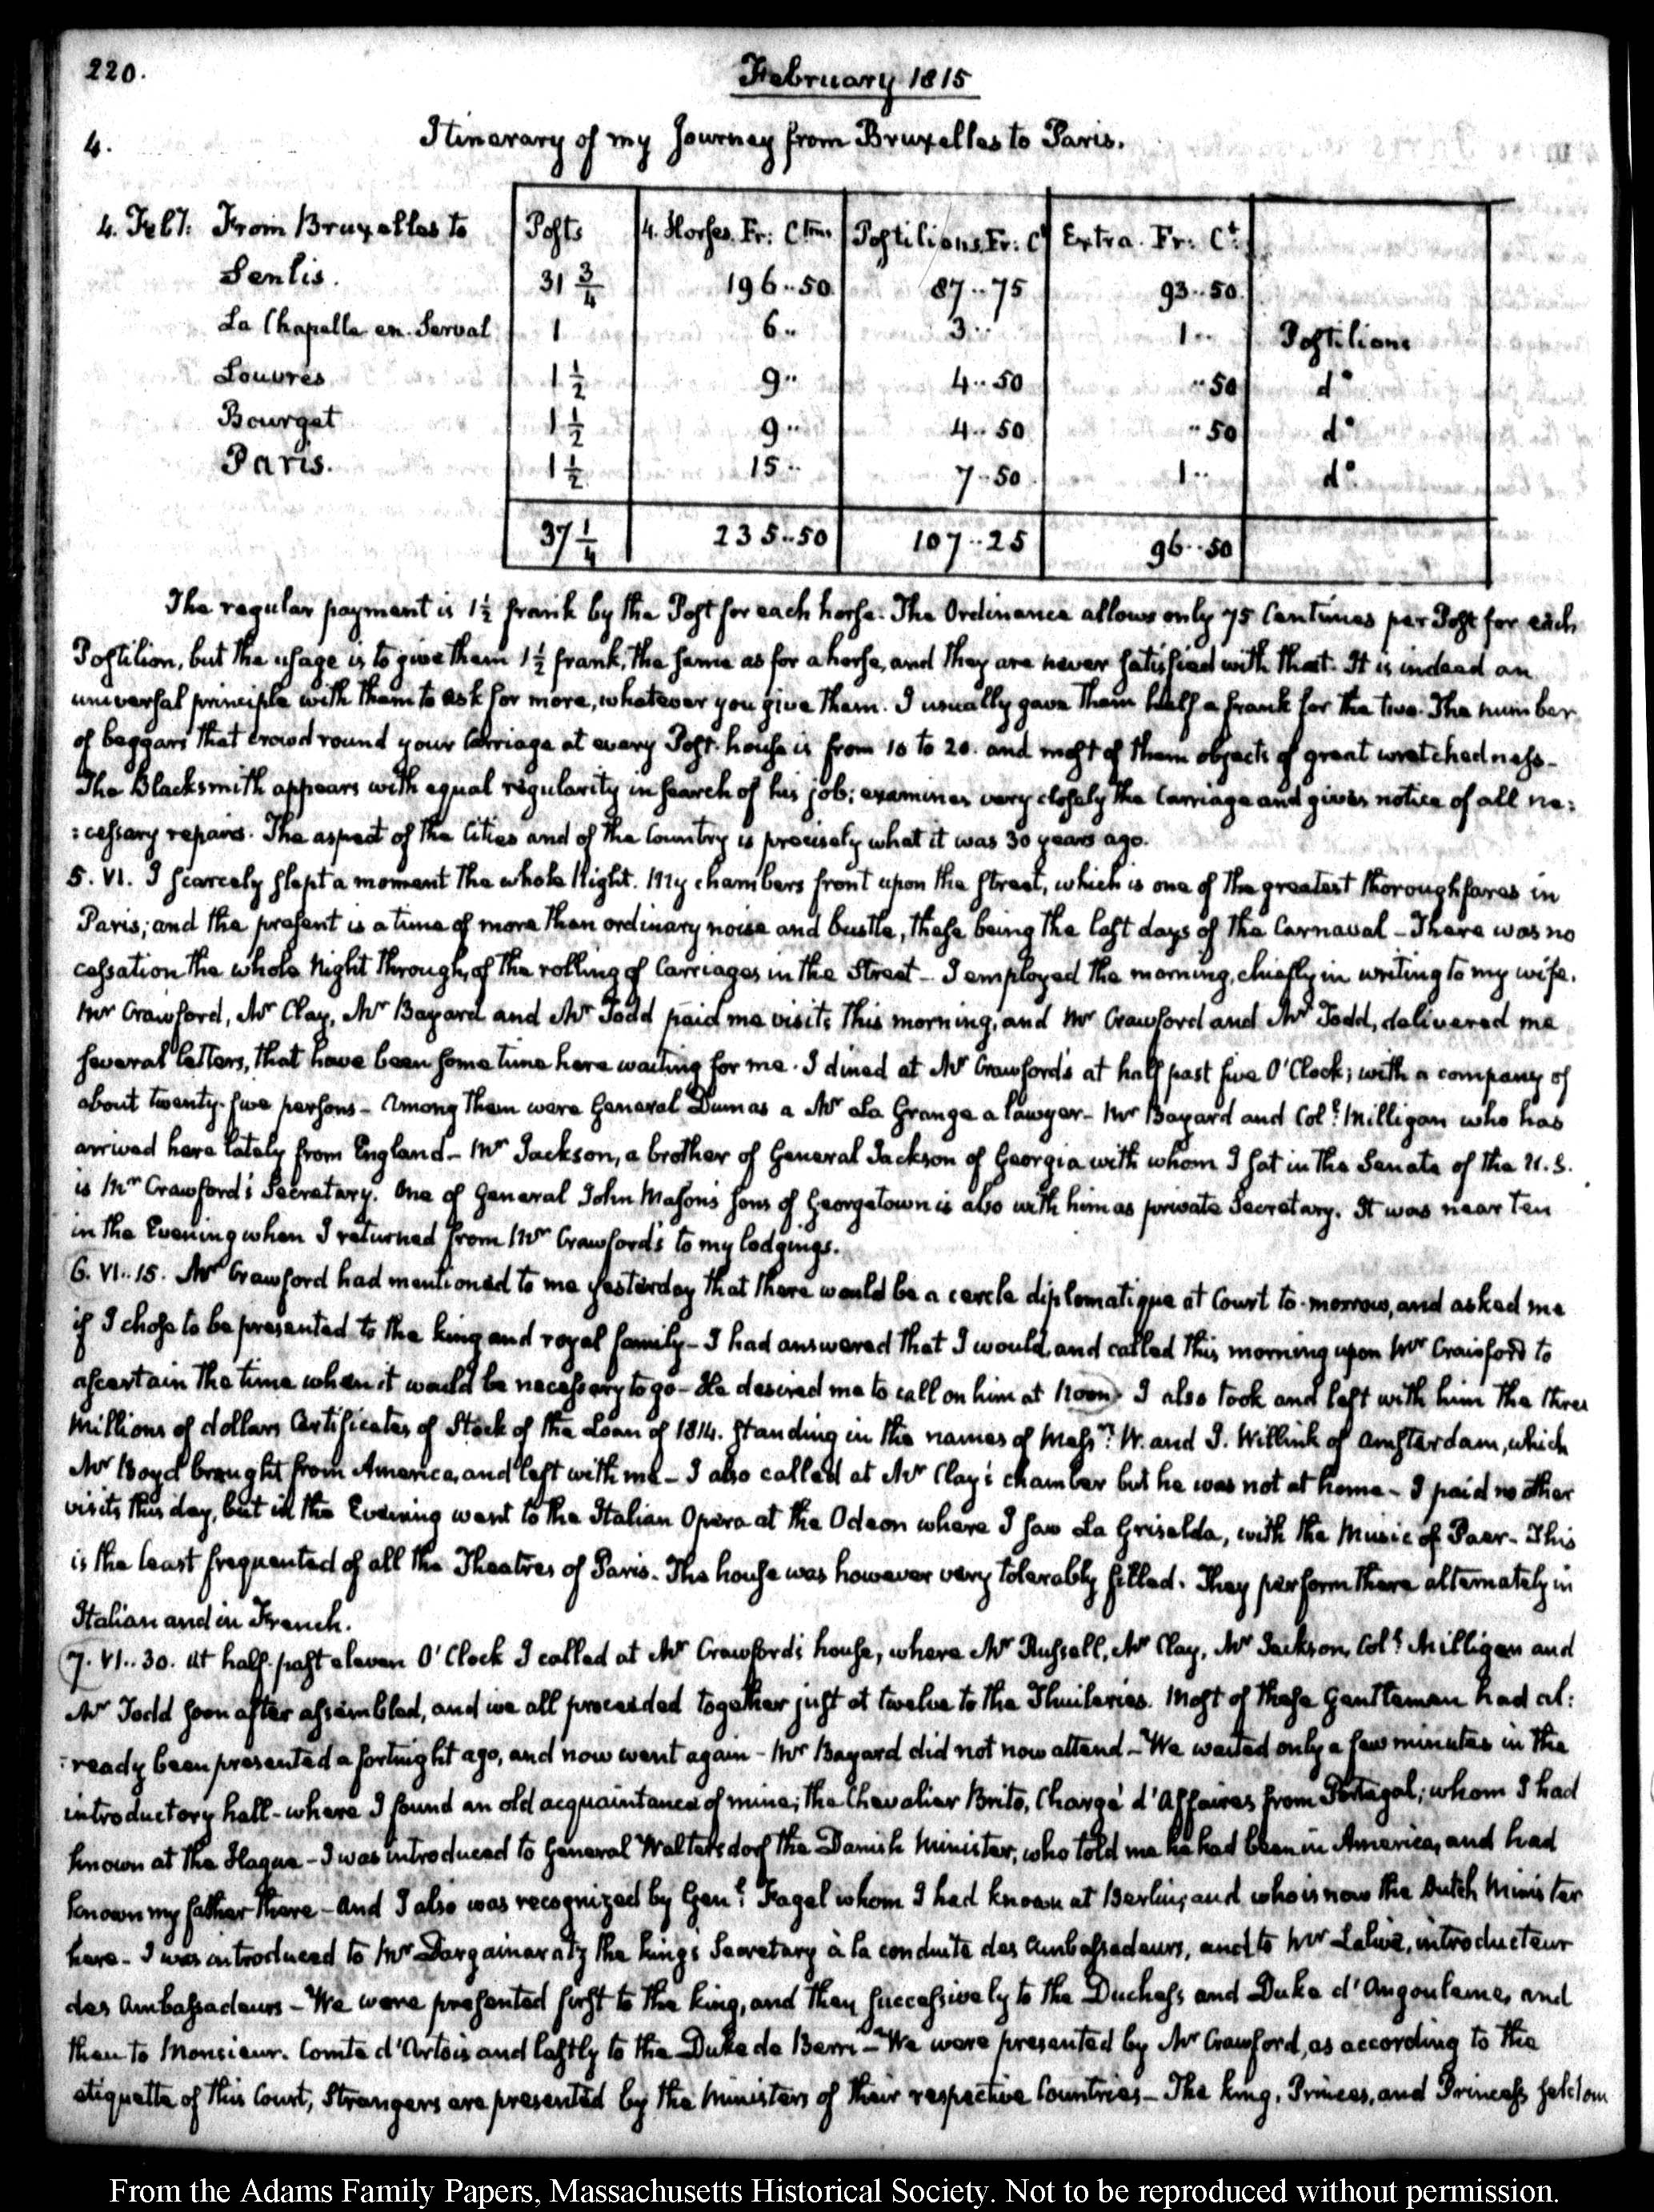 220.
February 1815
4.
Itinerary of my Journey from Bruxelles to Paris.
4. Feby: From Bruxelles to | Posts | 4. Horses. Fr: Ctmes | Postilions. Fr: Ct | Extra. Fr: Ct.
Senlis. | 31 3/4 | 196..50. | 87..75 | 93..50.
La Chapelle en. Serval | 1 | 6.. | 3.. | 1.. | Postilions
Louvres | 1 1/2 | 9.. | 4..50 | ..50 | do
Bourget | 1 1/2 | 9.. | 4..50 | ..50 | do
Paris. | 1 1/2 | 15.. | 7..50 | 1.. | do
37 1/4 | 235..50 | 107..25 | 96..50
The regular payment is 1½ frank by the Post for each horse. The Ordinance allows only 75 Centimes per Post for each
Postilion, but the usage is to give them 1½ frank, the same as for a horse, and they are never satisfied with that. It is indeed an
universal principle with them to ask for more, whatever you give them. I usually gave them half a frank for the two. The number
of beggars that crowd round your Carriage at every Post-house is from 10 to 20. and most of them objects of great wretchedness-
The Blacksmith appears with equal regularity in search of his job; examines very closely the Carriage and gives notice of all ne:
:cessary repairs. The aspect of the Cities and of the Country is precisely what it was 30 years ago.
5. VI. I scarcely slept a moment the whole Night. My chambers front upon the street, which is one of the greatest thoroughfares in
Paris; and the present is a time of more than ordinary noise and bustle, these being the last days of the Carnaval - There was no
cessation the whole Night through, of the rolling of Carriages in the Street - I employed the morning, chiefly in writing to my wife.
Mr Crawford, Mr Clay, Mr Bayard and Mr Todd paid me visits this morning, and Mr Crawford and Mr Todd, delivered me
several letters, that have been some time here waiting for me. I dined at Mr Crawford's at half past five O'Clock; with a company of
about twenty-five persons - Among them were General Dumas a Mr La Grange a lawyer - Mr Bayard and Coll: Milligan who has
arrived here lately from England - Mr Jackson, a brother of General Jackson of Georgia with whom I sat in the Senate of the U.S.
is Mr Crawford's Secretary. One of General John Mason's sons of Georgetown is also with him as private Secretary. It was near ten
in the Evening when I returned from Mr Crawford's to my lodgings.
6. VI..15. Mr Crawford had mentioned to me yesterday that there would be a cercle diplomatique at Court to-morrow, and asked me
if I chose to be presented to the king and royal family - I had answered that I would, and called this morning upon Mr Crawford to
ascertain the time when it would be necessary to go - He desired me to call on him at Noon. I also took and left with him the three
Millions of dollars Certificates of Stock of the Loan of 1814. standing in the names of Messrs: W. and J. Willink of Amsterdam, which
Mr Boyd brought from America, and left with me - I also called at Mr Clay's chamber but he was not at home - I paid no other
visits this day, but in the Evening went to the Italian Opera at the Odeon where I saw La Griselda, with the Music of Paer - This
is the least frequented of all the Theatres of Paris. The house was however very tolerably filled. They perform there alternately in
Italian and in French.
7. VI..30. At half-past eleven O'Clock I called at Mr Crawford's house, where Mr Russell, Mr Clay, Mr Jackson, Coll: Milligan and
Mr Todd soon after assembled, and we all proceeded together just at twelve to the Thuileries. Most of these Gentlemen had al:
:ready been presented a fortnight ago, and now went again - Mr Bayard did not now attend - We waited only a few minutes in the
introductory hall - where I found an old acquaintance of mine; the Chevalier Brito, Chargé d'Affaires from Portugal; whom I had
known at the Hague - I was introduced to General Waltersdorf the Danish Minister, who told me he had been in America, and had
known my father there - And I also was recognized by Genl: Fagel whom I had known at Berlin, and who is now the Dutch Minister
here - I was introduced to Mr Dargainaratz the king's Secretary à la conduite des Ambassadeurs, and to Mr Lalive, introducteur
des Ambassadeurs - We were presented first to the king, and then successively to the Duchess and Duke d'Angouleme, and
then to Monsieur. Comte d'Artois and lastly to the Duke de Berri - We were presented by Mr Crawford, as according to the
etiquette of this Court, Strangers are presented by the Ministers of their respective Countries - The king, Princes, and Princess seldom
From the Adams Family Papers, Massachusetts Historical Society. Not to be reproduced without permission.